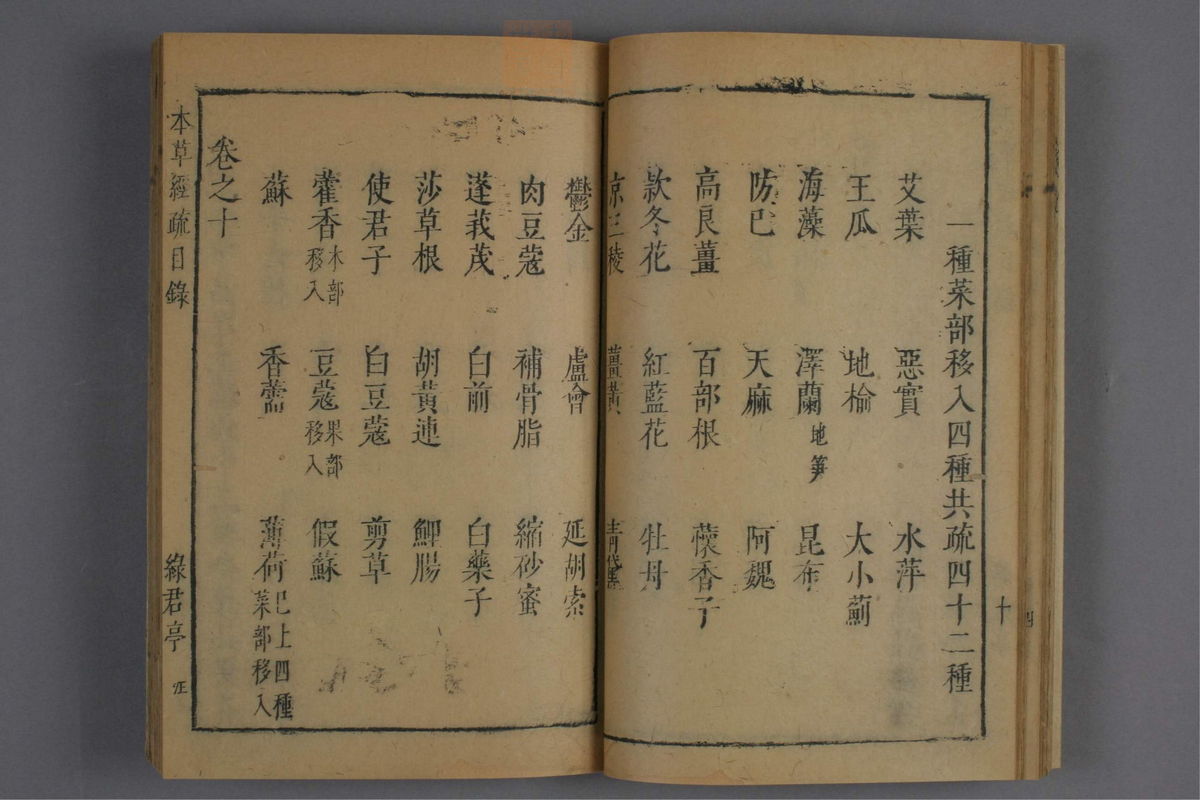 一種菜部移入四種共疏四十二種
艾葉 惡實 水萍
王瓜 地榆 大小薊
海藻 澤蘭 地笋 昆布
防巳 天麻 阿魏
高良薑 百部根 蘹香子
款冬花 紅藍花 牡丹
京三稜 薑黃 青黛
鬱金 盧會 延胡索
肉豆蔻 補骨脂 縮砂蜜
蓬莪茂 白前 白藥子
莎草根 胡黃連 鯉腸
使君子 白豆蔻 剪草
藿香 木部移入 豆蔻 果部移入 假蘇
蘇 香薷 薄荷 巳上四種菜部移入
卷之十
本草經疏目錄 綠君亭
十